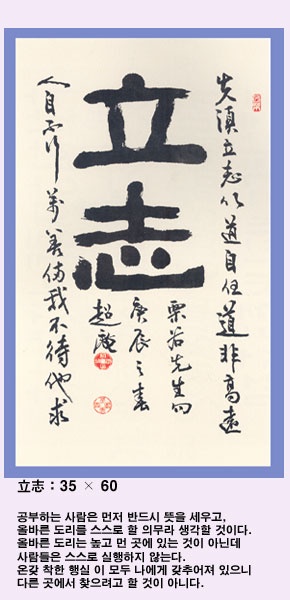 立志
先須立志以道自任道非高遠
人自不行萬善備我不待他求
栗谷先生句
庚辰之春
超
立志 : 35 × 60
공부하는 사람은 먼저 반드시 뜻을 세우고,
올바른 도리를 스스로 할 의무라 생각할 것이다.
올바른 도리는 높고 먼 곳에 있는 것이 아닌데
사람들은 스스로 실행하지 않는다.
온갖 착한 행실 이 모두 나에게 갖추어져 있으니
다른 곳에서 찾으려고 할 것이 아니다.